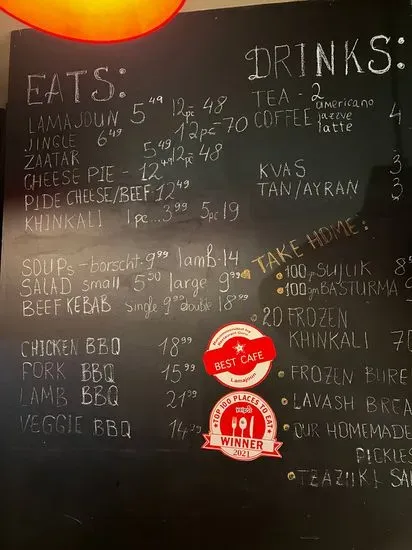 EATS:
LAMAJOUN 5.49 12pc 48
JINGLE 6.49 12pc-70
ZAATAR 5.49 12pc 48
CHEESE PIE - 12
PIDE CHEESE/BEEF-12.49
KHINKALI 1pc...3.99 5pc 19
SOUPs - borscht-9.99 lamb-14
SALAD small 5.50 large 9.99
BEEF KEBAB single 9.99 double 18.99
CHICKEN BBQ 18.99
PORK BBQ 15.99
LAMB BBQ 21.99
VEGGIE BBQ
DRINKS:
TEA - 2
COFFEE americano 4
jazzve
latte
KVAS 3
TAN/AYRAN 3
TAKE HOME:
100gr SUJUK 8
100gm BASTURMA 9
20 FROZEN
KHINKALI 70
FROZEN BURE
LAVASH BREA
OUR HOMEMADE
PICKLES
TZAZIKI SA
Recommended by
Restaurant Guru
BEST CAFE
Lamajoun
yelp
TOP 100 PLACES TO EAT
WINNER
2021